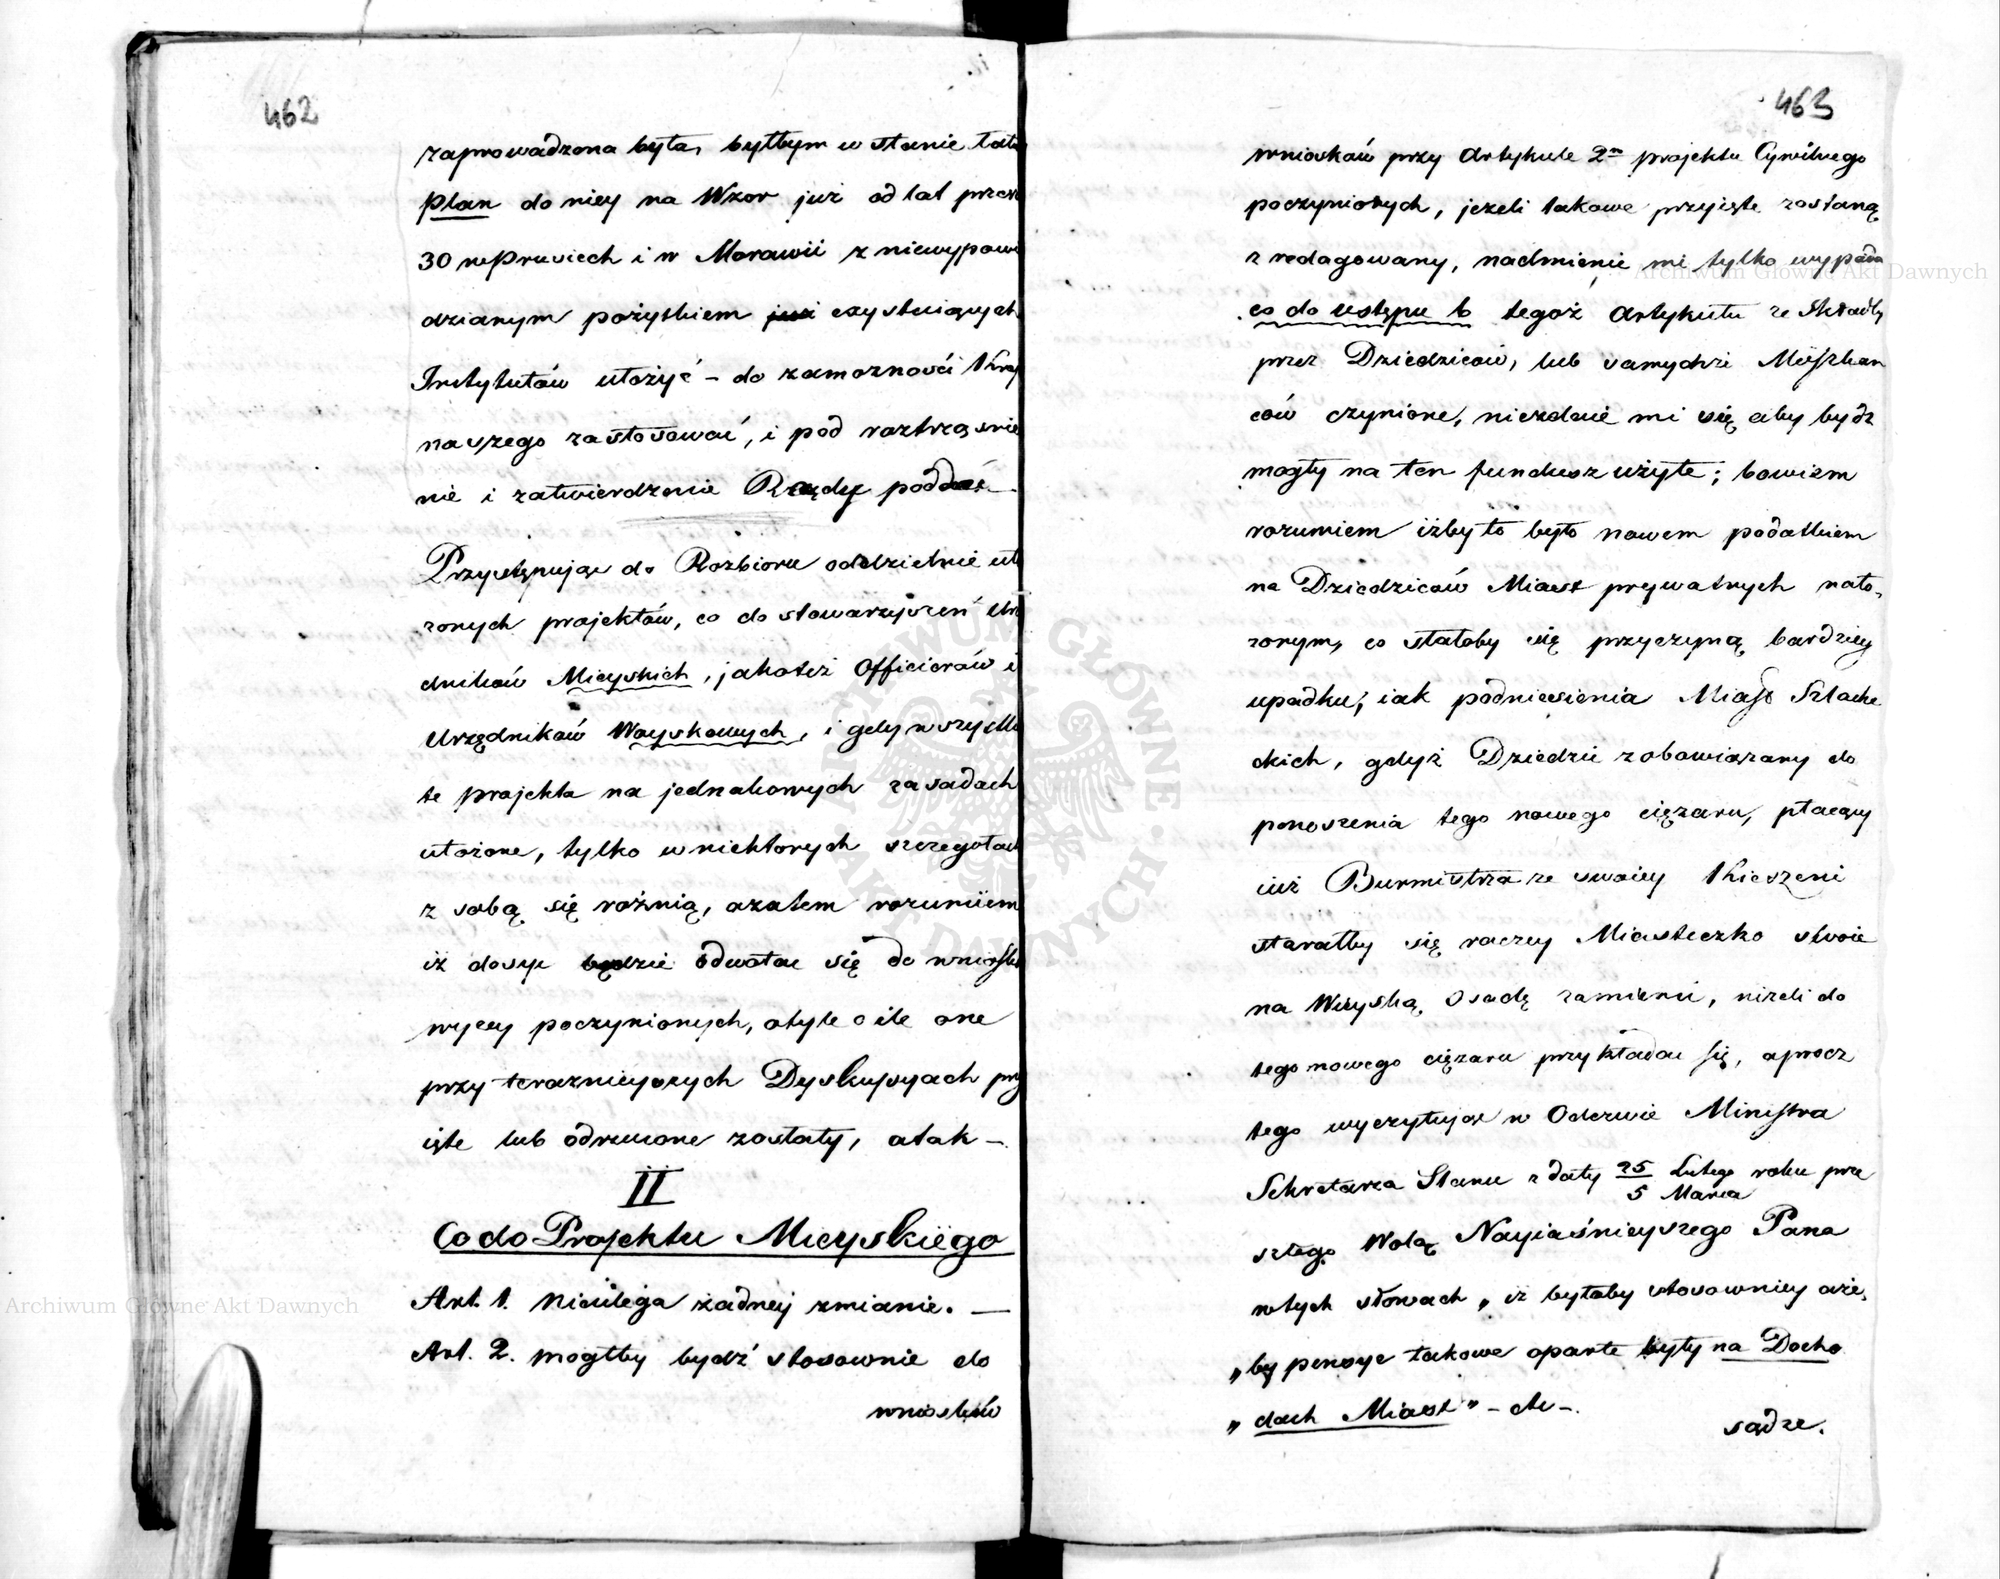 462
zaprowadzona była, byłbym w stanie
Plan do niey na Wzor już od lat przesz
30 w Prusiech i w Morawii z niewypowie
dzianym pożytkiem już exystuiących
Instytutów ułożyć – do zamożności Kraj
naszego zastosować, i pod roztrząsnie
nie i zatwierdzenie Rządu poddać. –
Przystępując do Rozbioru oddzielnie uło
żonych projektów, co do stowarzyszeń Urzę
dników Mieyskich, jakoteż Officierów i
Urzędników Woyskowych, i gdy wszystkie
te projekta na jednakowych zasadach
ułożone, tylko w niektorych szczegołach
z sobą się rożnią, azatem rozumiem
iż dosyc będzie odwołac się do wniosk
wyzey poczynionych, otyle o ile one
przy terazniejszych Dyskusyach przy
ięte lub odrzucone zostały, atak –
II
Co do Projektu Mieyskiego
Art. 1. Nieulega żadnej zmianie. —
Art. 2. mogłby bydź stosownie do
wniosków
463
wniosków przy Artykule 2m projektu Cywilnego
poczynionych, jeżeli takowe przyięte zostaną
zredagowany, nadmienić mi tylko wypada
co do ustępu b tegoż Artykułu że Składki
przez Dziedziców, lub samychże Mieszkan
ców czynione, niezdaie mi się aby bydz
mogły na ten fundusz użyte; bowiem
rozumiem iżby to było nowem podatkiem
na Dziedziców Miast prywatnych nało,
żonym, co stałoby się przyczyną bardziey
upadku, iak podniesienia Miast Szlache
ckich, gdyż Dziedzic zobowiązany do
ponoszenia tego nowego ciężaru, płacący
iuż Burmistrza ze swoiey Kieszeni
starałby się raczey Miasteczko swoie
na Wieyską Osadę zamienić, niżeli do
tego nowego ciężaru przykładac się, oprocz
tego wyczytując w Odezwie Ministra
Sekretarza Stanu z daty 25/5 Lutego/Marca roku prze
szłego Wolą Nayiaśnieyszego Pana
w tych słowach „ iż byłoby stosowniey aże,
„ by pensye takowe oparte były na Docho
„ dach Miast" – etc –.
sądze.
Archiwum Główne Akt Dawnych
Archiwum Główne Akt Dawnych
ARCHIWUM GŁÓWNE • AKT DAWNYCH •